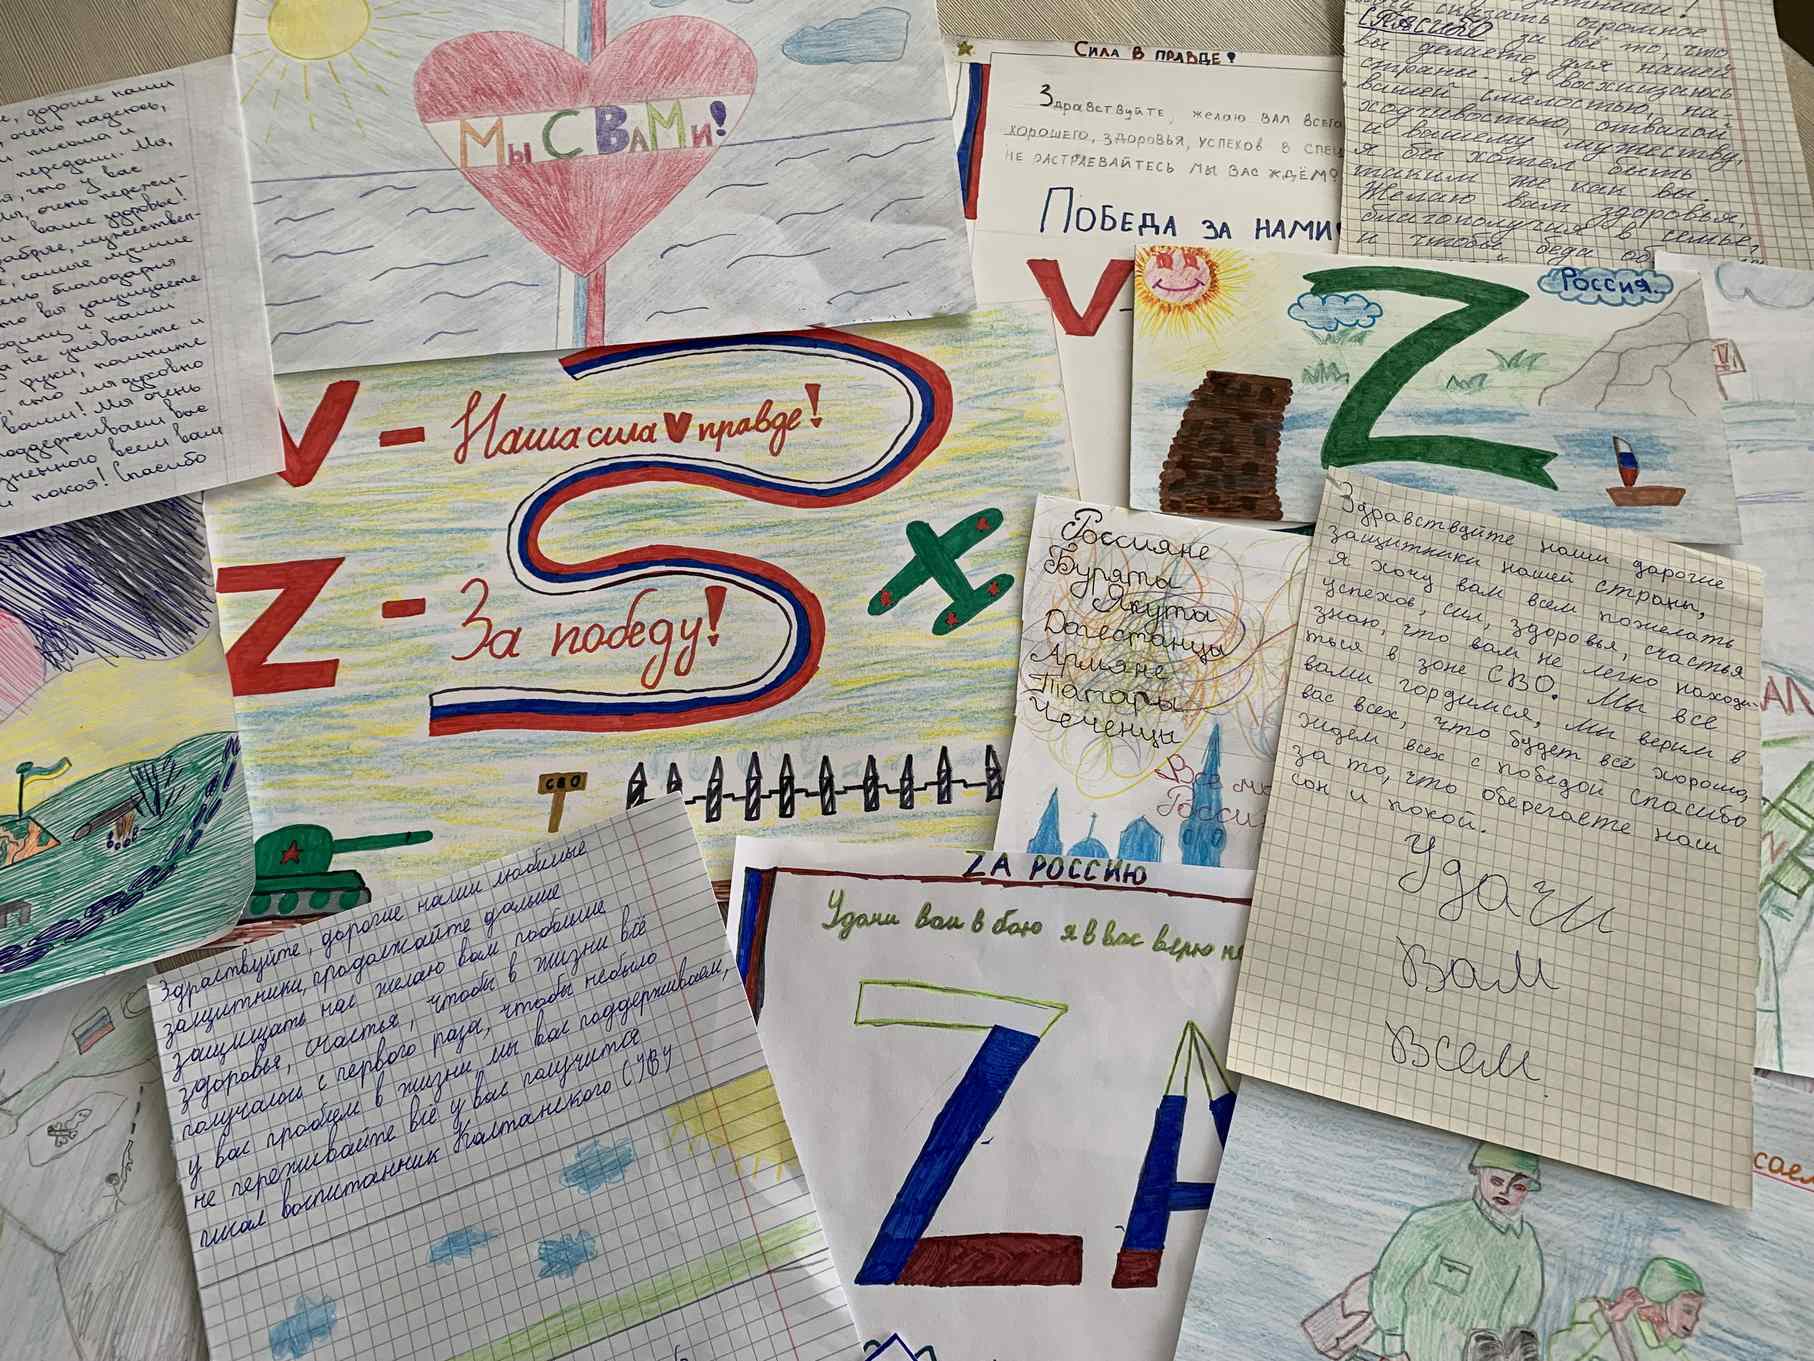 дорогие наши
очень надеюсь,
письма и
передали. Мы,
что у вас
очень пережи-
и ваше здоровье!
самые лучшие
благодарна
вы защищаете
и наши
не унывайте и
руки, помните
что мы духовно
вами! Мы очень
поддерживаем вас
всем вам
и покоя! Спасибо
Мы с Вами!
Сила в правде!
Здравствуйте, желаю вам всего
хорошего, здоровья, успехов в спец
не растраевайтесь мы вас ждём?
Победа за нами!
V-
сказать огромное
спасибо за всё то, что
вы делаете для нашей
страны. Я восхищаюсь
вашей смелостью, на-
ходчивостью, отвагой
и вашему мужеству,
я бы хотел быть
таким же как вы.
Желаю вам здоровья,
благополучия в семье,
и чтобы беда об
Z
Россия.
V - Наша сила V правде!
Z - За победу!
СВО
Россияне
Буряты
Якуты
Дагестанцы
Армяне
Татары
Чеченцы
Все мы
Росси
Здравствуйте наши дорогие
защитники нашей страны,
я хочу вам всем пожелать
успехов, сил, здоровья, счастья
знаю, что вам не легко находи-
ться в зоне СВО. Мы все
вами гордимся, мы верим в
вас всех, что будет всё хорошо,
ждём всех с победой спасибо
за то, что оберегаете наш
сон и покой.
Удачи
Вам
Всем
Здраствуйте, дорогие наши любимые
защитники, продолжайте дальше
защищать нас желаю вам поболше
здоровья, счастья, чтобы в жизни всё
получалось с первого раза, чтобы небыло
у вас проблем в жизни мы вас поддерживаем,
не переживайте всё у вас получится
писал воспитанник Калтанского СУВУ
ZА РОССИЮ
Удачи вам в бою я в вас верю
ZА